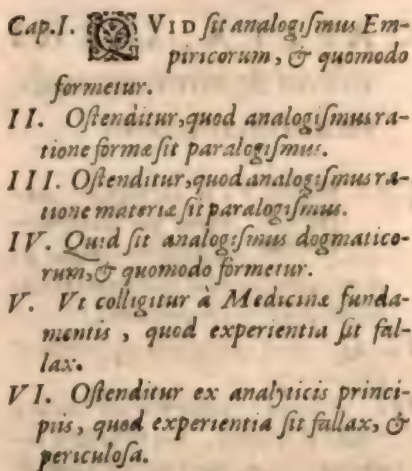 Cap.I. QVID ſit analogiſmus Em-
piricorum, & quomodo
formetur.
II. Oſtenditur,quod analogiſmus ra-
tione formæ ſit paralogiſmus.
III. Oſtenditur,quod analogiſmus ra-
tione materiæ ſit paralogiſmus.
IV. Quid ſit analogiſmus dogmatico-
rum,& quomodo formetur.
V. Vt colligitur à Medicinæ funda-
mentis , quod experientia ſit fal-
lax.
VI. Oſtenditur ex analyticis princi-
piis, quod experientia ſit fallax, &
periculoſa.